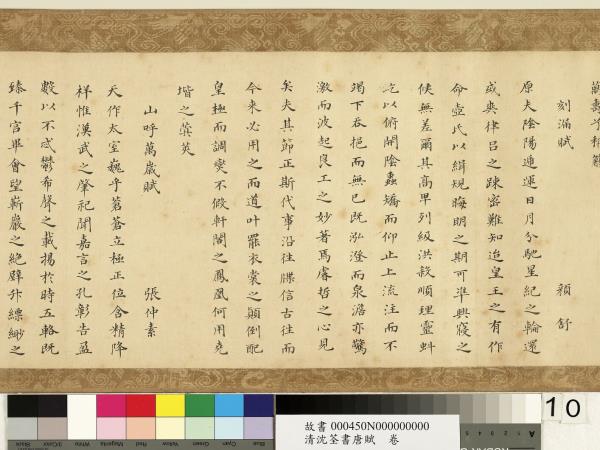 刻漏賦 顏舒
原夫陰陽遞運日月分馳星紀之輪還
或爽律呂之疎密難知迨皇王之有作
命壺氏以緝規晦明之期可準興寢之
候無差爾其高卑列級洪殺順理靈虯
屹以俯開陰蟲矯而仰止上流注而不
竭下吞挹而無已既泓澄而泉澹亦驚
激而波起良工之妙著焉睿哲之心見
矣夫其節正斯代事沿往牒信古往而
今來必用之而道叶罷衣裳之顛倒配
皇極而調燮不假軒閣之鳳凰何用堯
堦之蓂莢
山呼萬歲賦 張仲素
天作太室巍乎蒼蒼立極正位含精降
祥惟漢武之肇祀聞嘉言之孔彰告盈
數以不忒鬱希聲之載揚於時五輅既
臻千官畢會望嶄巖之絕壁升縹緲之
Black 3/Color White Magenta Red Yellow Green Cyan Blue
故書 000450N000000000
清沈荃書唐賦 卷
A
10